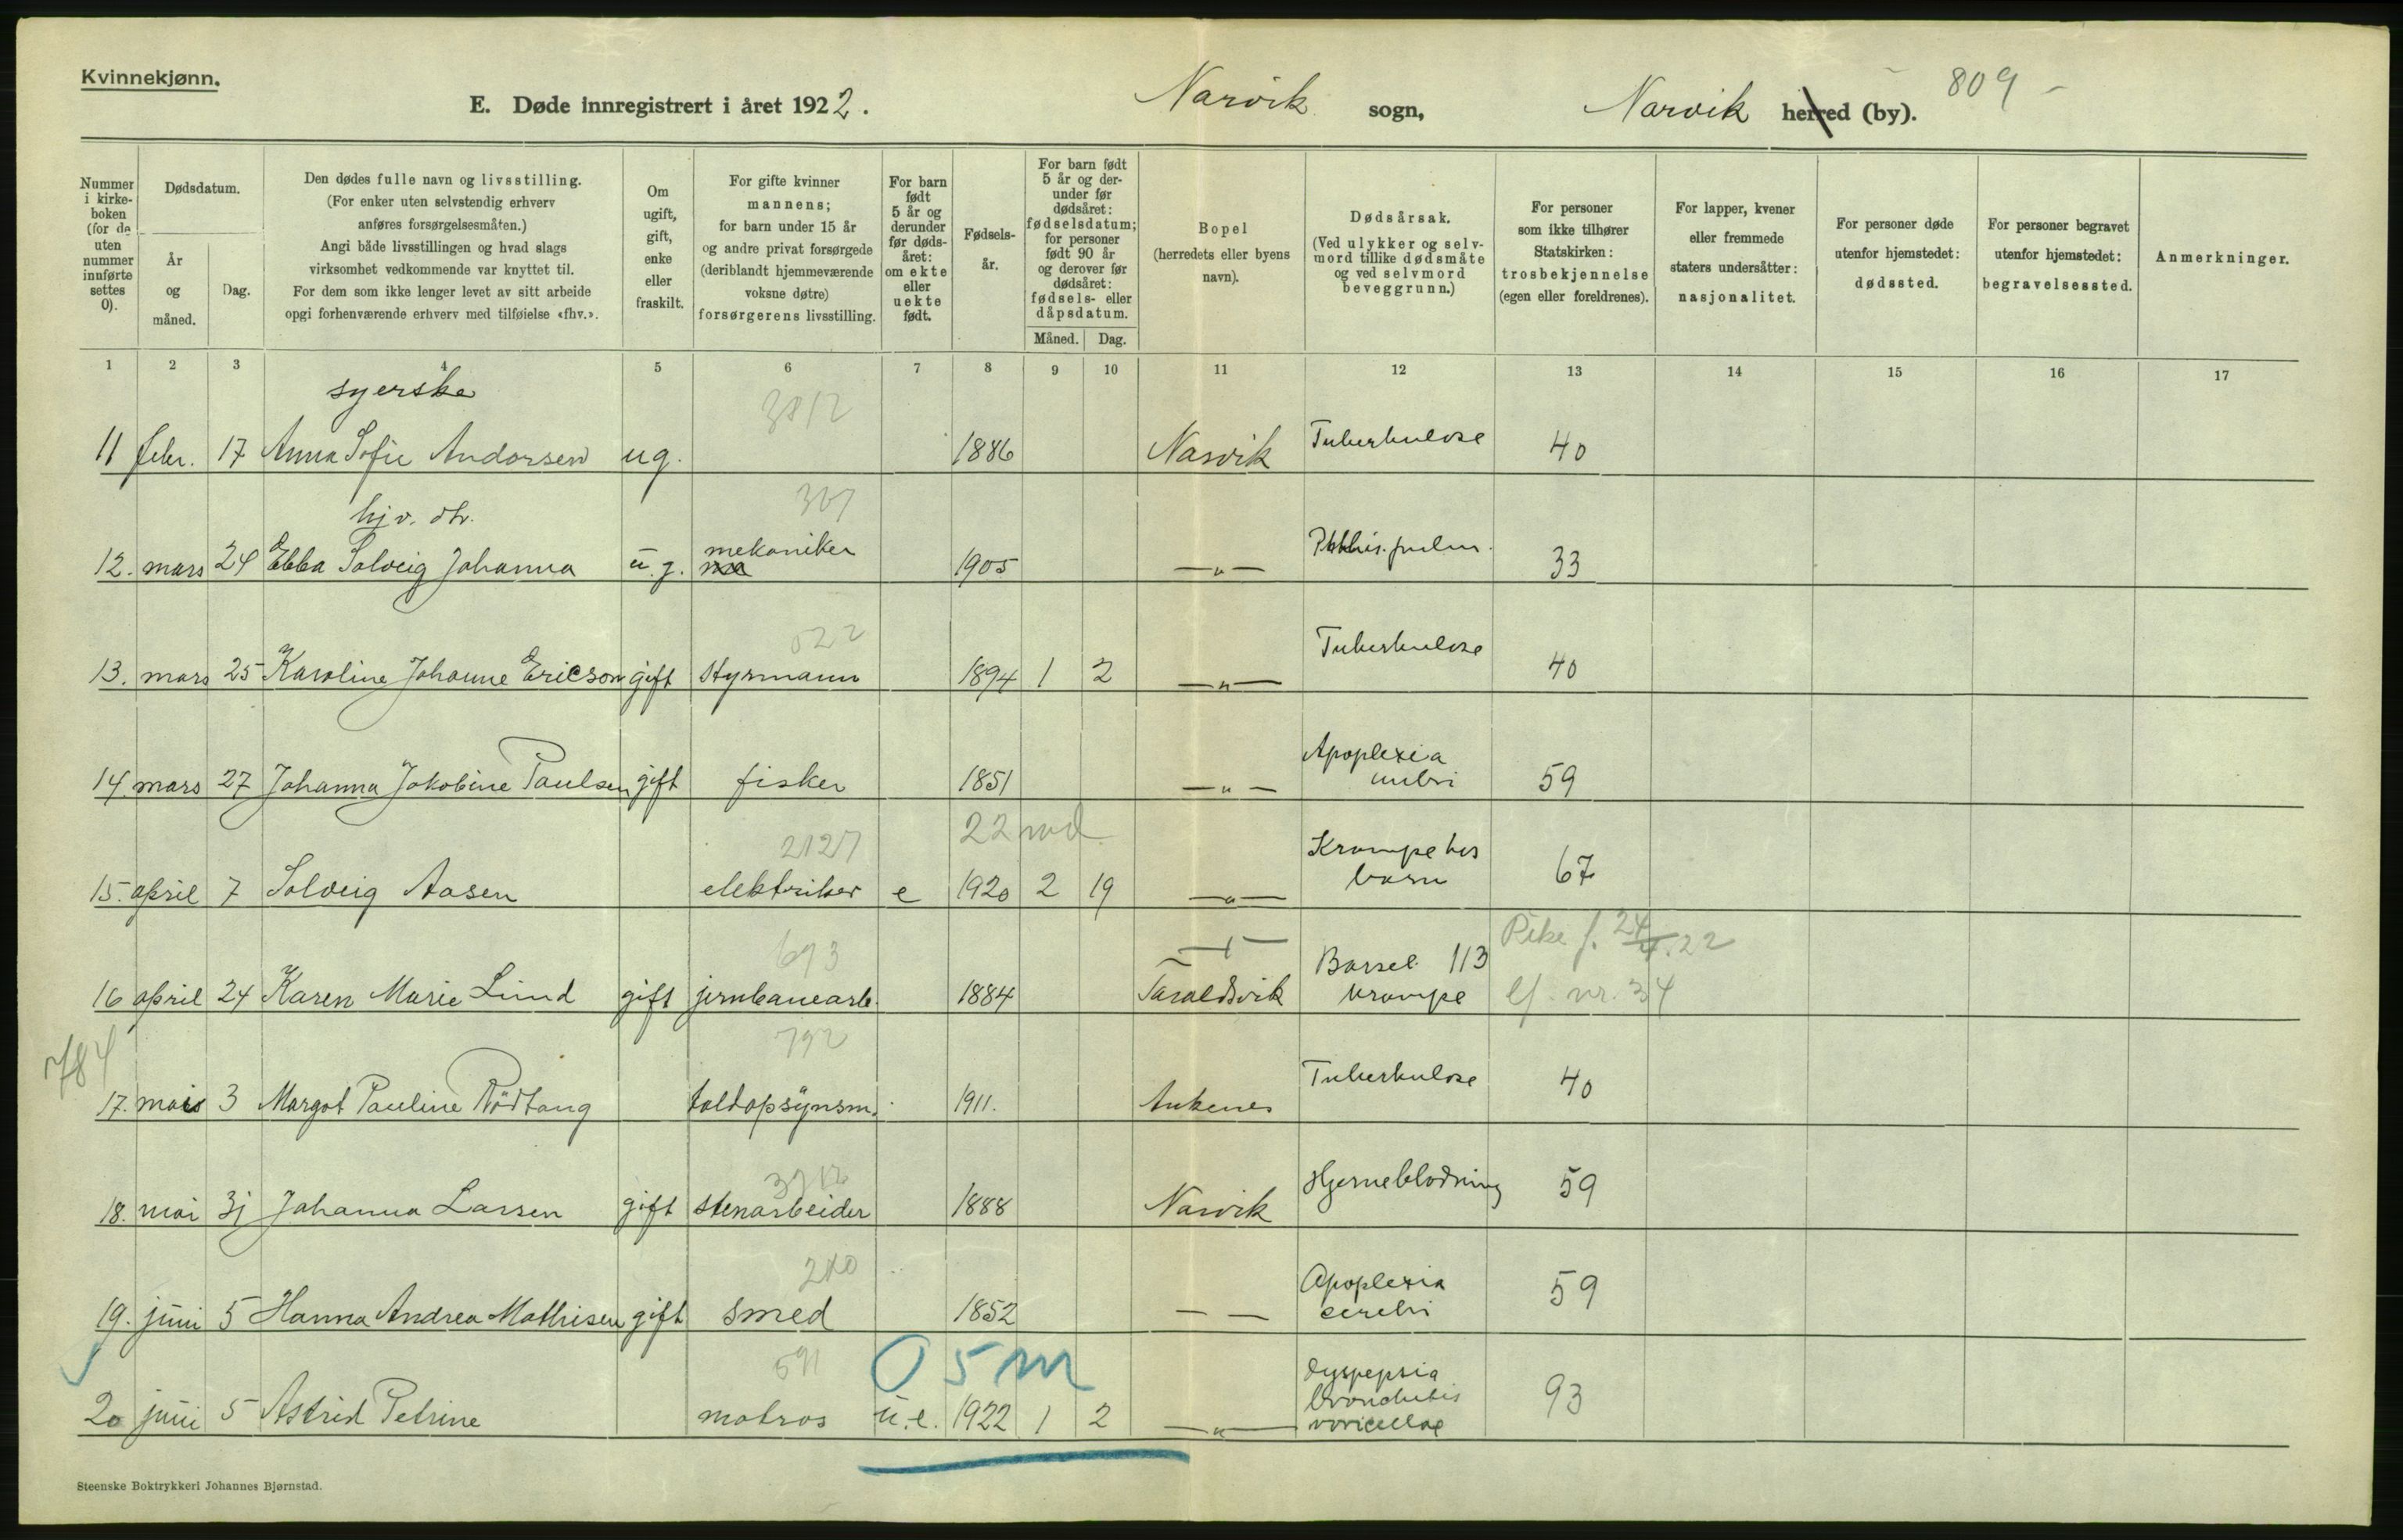 Kvinnekjønn.
809 -
E. Døde innregistrert i året 1922. Narvik sogn, Narvik herred (by).
Nummer i kirke-boken (for de uten nummer innførte settes 0).
Dødsdatum.
År og måned.
Dag.
Den dødes fulle navn og livsstilling.
(For enker uten selvstendig erhverv
anføres forsørgelsesmåten.)
Angi både livsstillingen og hvad slags
virksomhet vedkommende var knyttet til.
For dem som ikke lenger levet av sitt arbeide
opgi forhenværende erhverv med tilføielse «fhv.».
Om ugift, gift, enke eller fraskilt.
For gifte kvinner
mannens;
for barn under 15 år
og andre privat forsørgede
(deriblandt hjemmeværende
voksne døtre)
forsørgerens livsstilling.
For barn født 5 år og derunder før døds-året: om ekte eller uekte født.
Fødsels-år.
For barn født 5 år og der-under før dødsåret: fødselsdatum; for personer født 90 år og derover før dødsåret: fødsels- eller dåpsdatum.
Måned. Dag.
Bopel
(herredets eller byens
navn).
Dødsårsak.
(Ved ulykker og selv-
mord tillike dødsmåte
og ved selvmord
beveggrunn.)
For personer
som ikke tilhører
Statskirken:
trosbekjennelse
(egen eller foreldrenes).
For lapper, kvener
eller fremmede
staters undersåtter:
nasjonalitet.
For personer døde
utenfor hjemstedet:
dødssted.
For personer begravet
utenfor hjemstedet:
begravelsessted.
Anmerkninger.
1 2 3 4 5 6 7 8 9 10 11 12 13 14 15 16 17
syerske 3812
11 febr. 17 Anna Sofie Andorsen ug. 1886 Narvik Tuberkulose 40
hj.v. dtr. 307
12. mars 24 Ebba Solveig Johanna u.g. mekaniker 1905 —"— Phthis. pulm. 33
022
13. mars 25 Karoline Johanne Ericson gift Styrmann 1894 1 2 —"— Tuberkulose 40
14. mars 27 Johanna Jokobine Paulsen gift fisker 1851 —"— Apoplexia 59
2127 22 md
15. april 7 Solveig Aasen elektriker e 1920 2 19 —"— Krampe hos barn 67
693 Pike f. 24/4.22
16 april 24 Karen Marie Lund gift jernbanearb. 1884 Taraldsvik Barsel krampe 113 lf. nr. 34
784 792
17. mai 3 Margot Pauline Rödtang toldopsynsm. 1911. Ankenes Tuberkulose 40
18. mai 31 Johanna Larsen gift stenarbeider 1888 Narvik Hjerneblødning 59
240
19. juni 5 Hanna Andrea Mathisen gift smed 1852 — — Apoplexia cerebri 59
591 0 5 m
20 juni 5 Astrid Petrine matros u.e. 1922 1 2 —"— dyspepsia bronchitis varicellae 93
Steenske Boktrykkeri Johannes Bjørnstad.